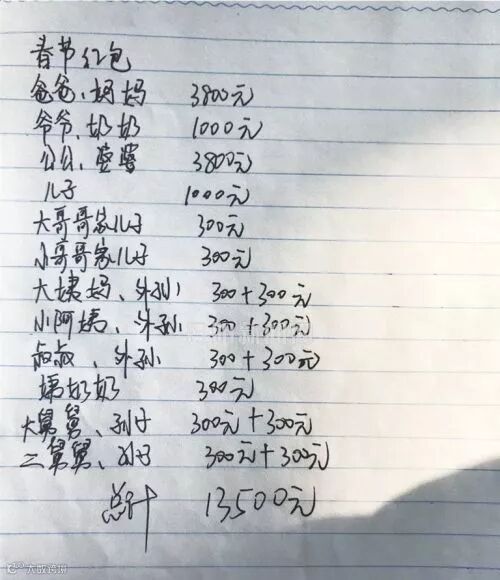 春节红包
爸爸、妈妈 3800元
爷爷、奶奶 1000元
公公、婆婆 3800元
儿子 1000元
大哥哥家儿子 300元
小哥哥家儿子 300元
大姨妈、外孙 300+300元
小阿姨、外孙 300+300元
叔叔、外孙 300+300元
姨奶奶 300元
大舅舅、孙子 300元+300元
二舅舅、孙子 300元+300元
总计 13500元
大数跨境